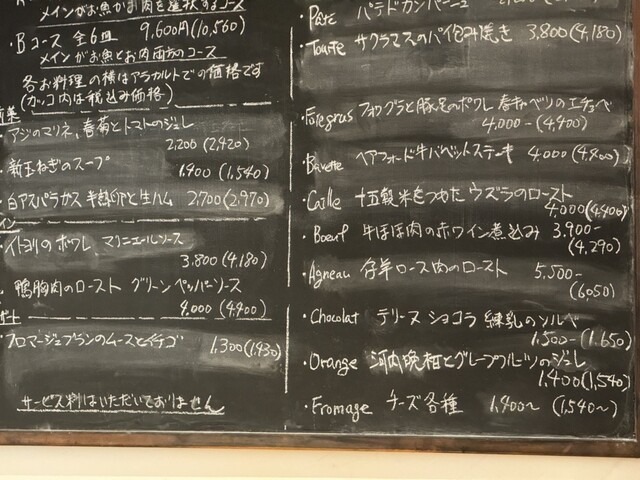 メインがお魚かお肉を選択するコース
・Bコース 全6皿 9,600円(10,560)
メインがお魚とお肉両方のコース
各お料理の横はアラカルトでの価格です
(カッコ内は税込み価格)
前菜
アジのマリネ、春菊とトマトのジュレ
2,200(2,420)
新玉ねぎのスープ
1,400(1,540)
白アスパラガス 半熟卵と生ハム 2,700(2,970)
イン
イトヨリのポワレ マリニエールソース
3,800(4,180)
鴨胸肉のロースト グリーンペッパーソース
4,000(4,400)
ザート
フロマージュブランのムースとイチゴ 1,300(1,430)
サービス料はいただいておりません
・Pâté パテドカンパーニュ
・Tourte サクラマスのパイ包み焼き 3,800(4,180)
・Foie gras フォワグラと豚足のポワレ 春キャベツのエチュベ
4,000-(4,400)
・Bavette ヘアフォード牛バベットステーキ 4,000(4,400)
・Caille 十五穀米をつめたウズラのロースト
4,000(4,400)
・Boeuf 牛ほほ肉の赤ワイン煮込み 3,900-
(4,290)
・Agneau 仔羊ロース肉のロースト 5,500-
(6050)
・Chocolat テリーヌショコラ 練乳のソルベ
1,500-(1,650)
・Orange 河内晩柑とグレープフルーツのジュレ
1,400(1,540)
・Fromage チーズ各種 1,400〜 (1,540〜)